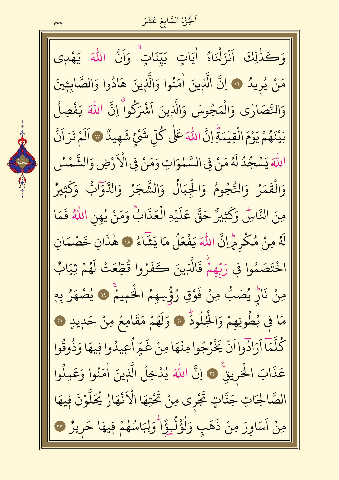 اَلْجُزْءُ السَّابِعُ عَشَرَ
وَكَذٰلِكَ اَنْزَلْنَاهُ اٰيَاتٍ بَيِّنَاتٍۙ وَاَنَّ اللّٰهَ يَهْدٖى
مَنْ يُرٖيدُ ﴿١٦﴾ اِنَّ الَّذٖينَ اٰمَنُوا وَالَّذٖينَ هَادُوا وَالصَّابِـٖٔينَ
وَالنَّصَارٰى وَالْمَجُوسَ وَالَّذٖينَ اَشْرَكُواۗ اِنَّ اللّٰهَ يَفْصِلُ
بَيْنَهُمْ يَوْمَ الْقِيٰمَةِۜ اِنَّ اللّٰهَ عَلٰى كُلِّ شَیْءٍ شَهٖيدٌ ﴿١٧﴾ اَلَمْ تَرَ اَنَّ
اللّٰهَ يَسْجُدُ لَهُ مَنْ فِى السَّمٰوَاتِ وَمَنْ فِى الْاَرْضِ وَالشَّمْسُ
وَالْقَمَرُ وَالنُّجُومُ وَالْجِبَالُ وَالشَّجَرُ وَالدَّوَٓابُّ وَكَثٖيرٌ
مِنَ النَّاسِۜ وَكَثٖيرٌ حَقَّ عَلَيْهِ الْعَذَابُۜ وَمَنْ يُهِنِ اللّٰهُ فَمَا
لَهُ مِنْ مُكْرِمٍۜ اِنَّ اللّٰهَ يَفْعَلُ مَا يَشَٓاءُ ﴿١٨﴾ هٰذَانِ خَصْمَانِ
اخْتَصَمُوا فٖى رَبِّهِمْۘ فَالَّذٖينَ كَفَرُوا قُطِّعَتْ لَهُمْ ثِيَابٌ
مِنْ نَارٍۜ يُصَبُّ مِنْ فَوْقِ رُؤُ۫سِهِمُ الْحَمٖيمُۚ ﴿١٩﴾ يُصْهَرُ بِهٖ
مَا فٖى بُطُونِهِمْ وَالْجُلُودُۜ ﴿٢٠﴾ وَلَهُمْ مَقَامِعُ مِنْ حَدٖيدٍ ﴿٢١﴾
كُلَّمَٓا اَرَادُٓوا اَنْ يَخْرُجُوا مِنْهَا مِنْ غَمٍّ اُعٖيدُوا فٖيهَا وَذُوقُوا
عَذَابَ الْحَرٖيقِ ﴿٢٢﴾ اِنَّ اللّٰهَ يُدْخِلُ الَّذٖينَ اٰمَنُوا وَعَمِلُوا
الصَّالِحَاتِ جَنَّاتٍ تَجْرٖى مِنْ تَحْتِهَا الْاَنْهَارُ يُحَلَّوْنَ فٖيهَا
مِنْ اَسَاوِرَ مِنْ ذَهَبٍ وَلُؤْلُؤًاۜ وَلِبَاسُهُمْ فٖيهَا حَرٖيرٌ ﴿٢٣﴾